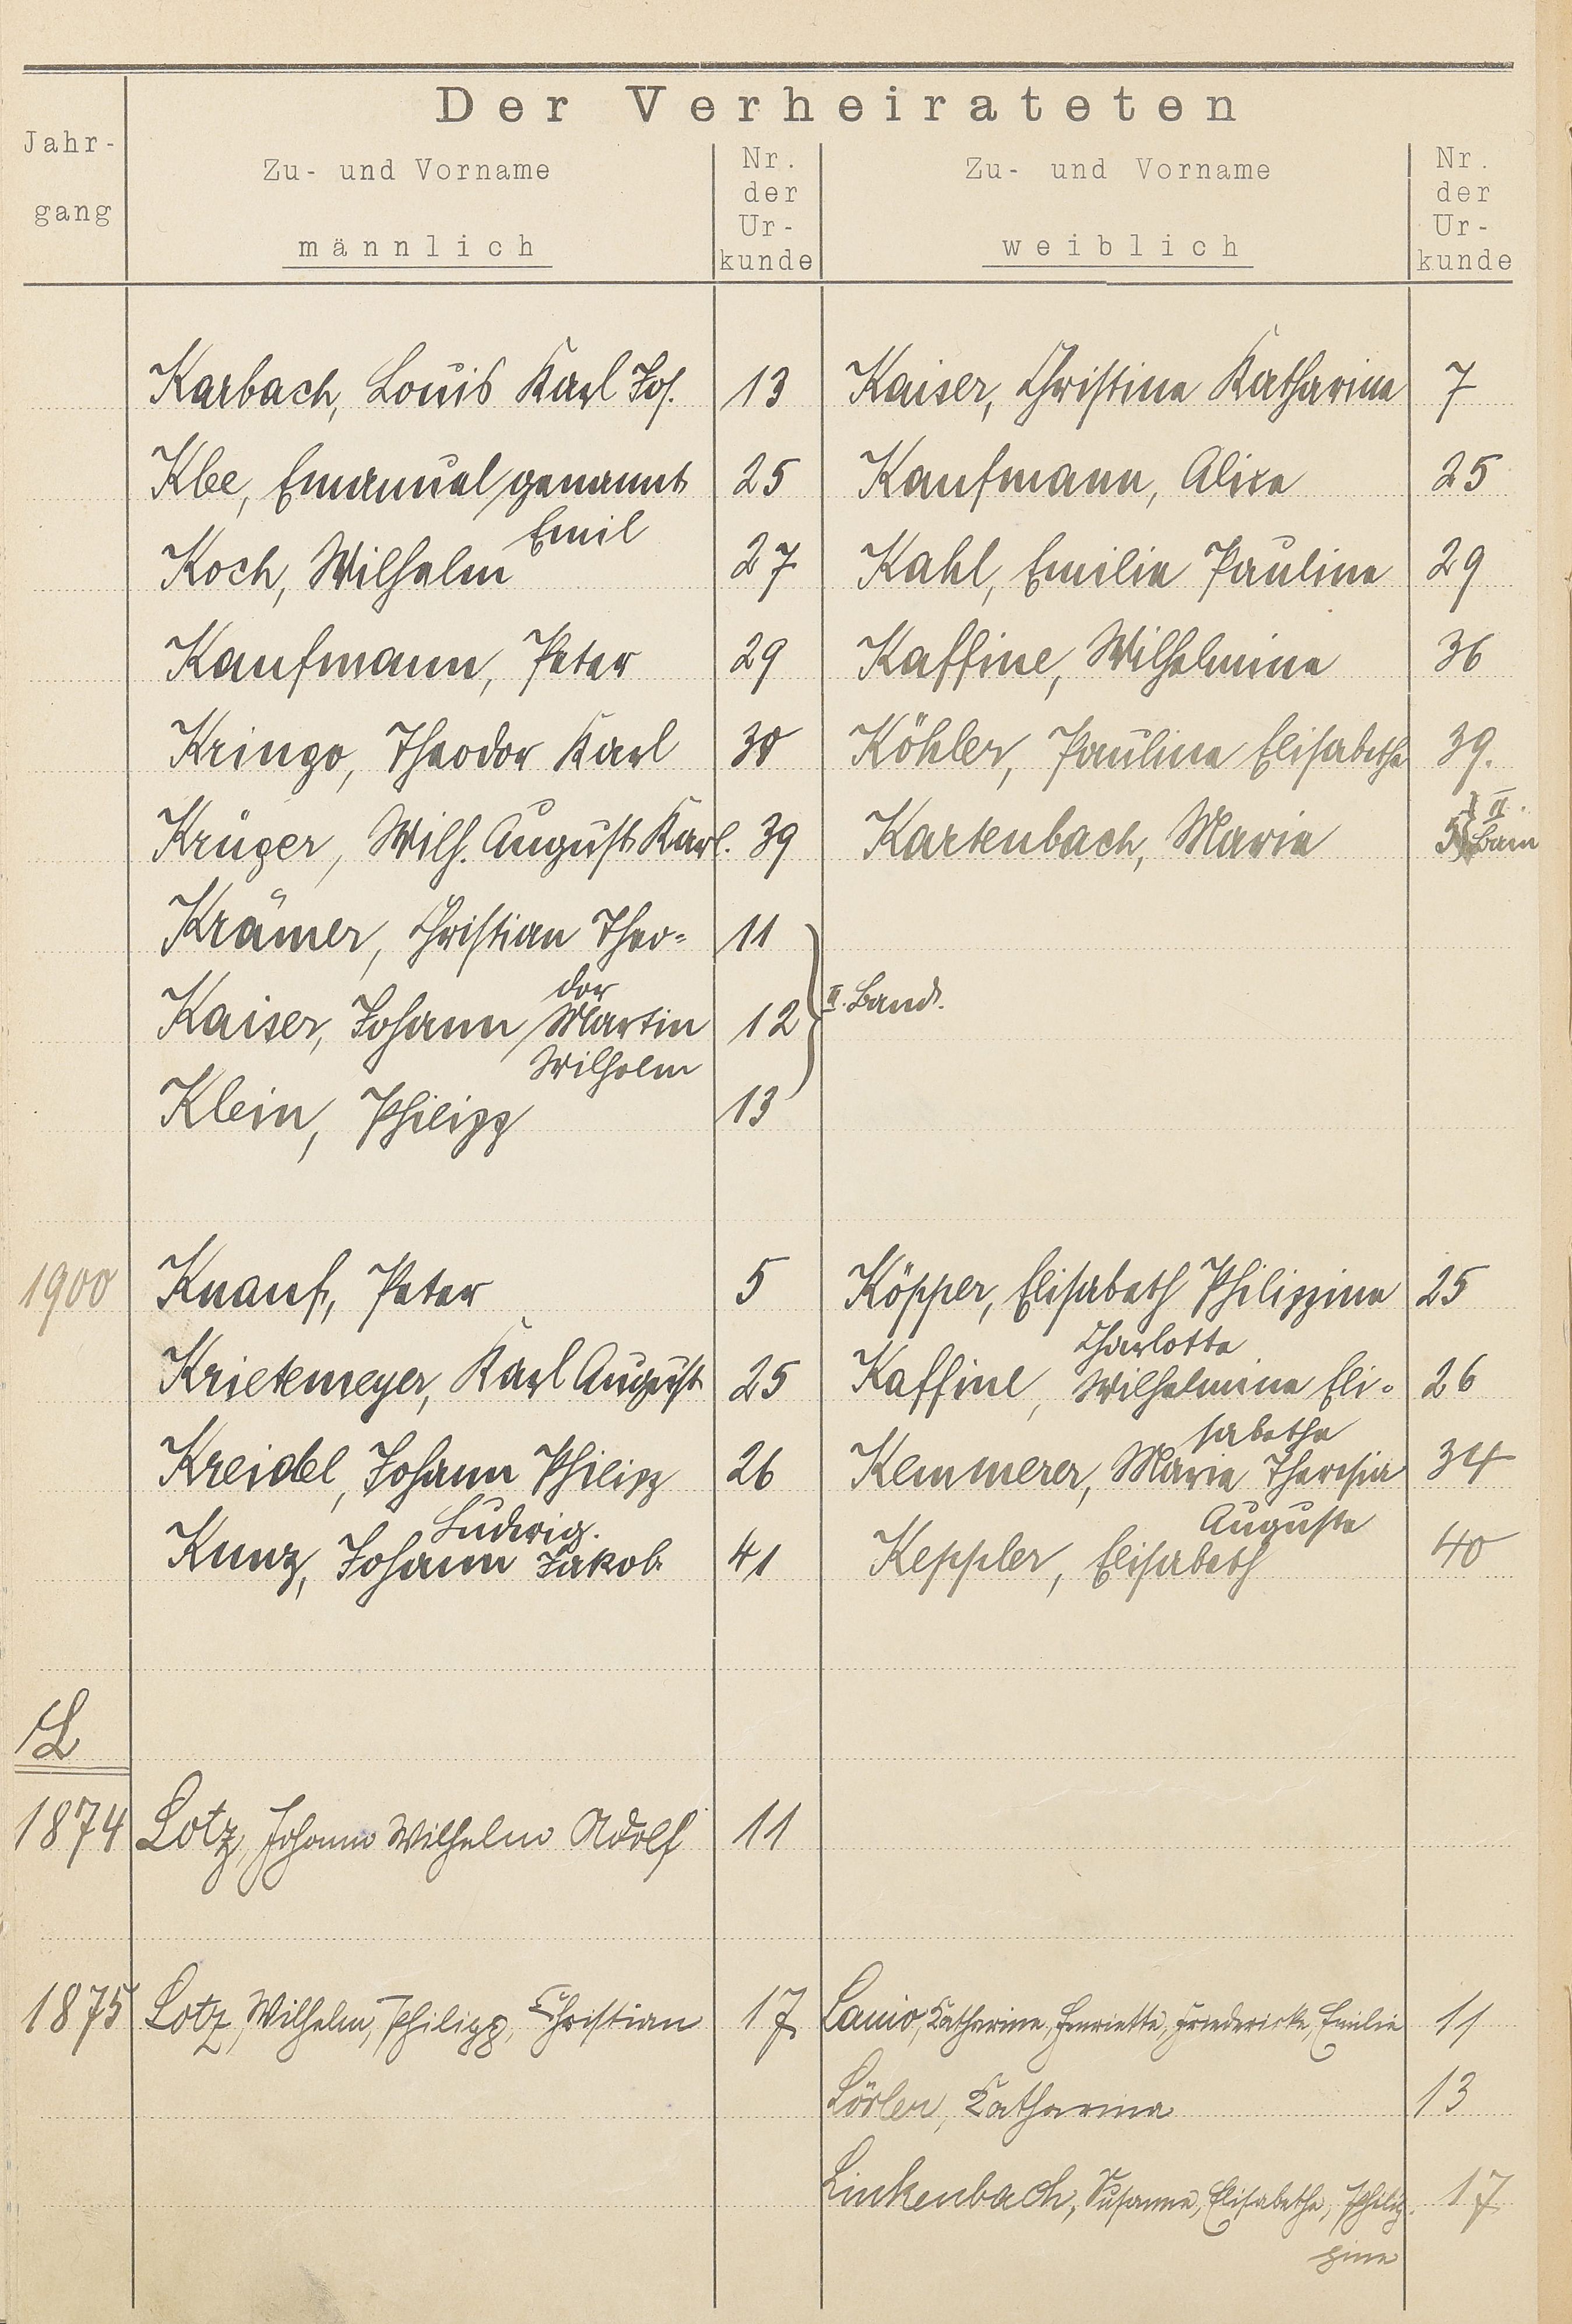 Der Verheirateten
Jahr-
gang
Zu- und Vorname
männlich
Nr.
der
Ur-
kunde
Zu- und Vorname
weiblich
Nr.
der
Ur-
kunde
Karbach, Louis Karl Jos. 13 Kaiser, Christine Katharine 7
Klee, Emanuel genannt 25 Kaufmann, Alice 25
Emil
Koch, Wilhelm 27 Kahl, Emilie Pauline 29
Kaufmann, Peter 29 Kaffine, Wilhelmine 36
Kringo, Theodor Karl 30 Köhler, Pauline Elisabethe 39.
Krüger, Wilh. August Karl. 39 Kartenbach, Marie 5 II. Ban
Krämer, Christian Theo= 11
dor
Kaiser, Johann Martin 12 II. Band.
Wilhelm
Klein, Philipp 13
1900 Knauf, Peter 5 Köpper, Elisabeth Philippine 25
Charlotte
Krietemeyer, Karl August 25 Kaffine, Wilhelmine Eli= 26
sabethe
Kreidel, Johann Philipp 26 Kemmerer, Marie Theresia 34
Ludwig. Auguste
Kunz, Johann Jakob 41 Keppler, Elisabeth 40
L
1874 Lotz, Johann Wilhelm Adolf 11
1875 Lotz, Wilhelm, Philipp, Christian 17 Lanio, Katharine, Henriette, Friedericke, Emilie 11
Lörler, Katharina 13
Linkenbach, Susanne, Elisabethe, Philip- 17
pine